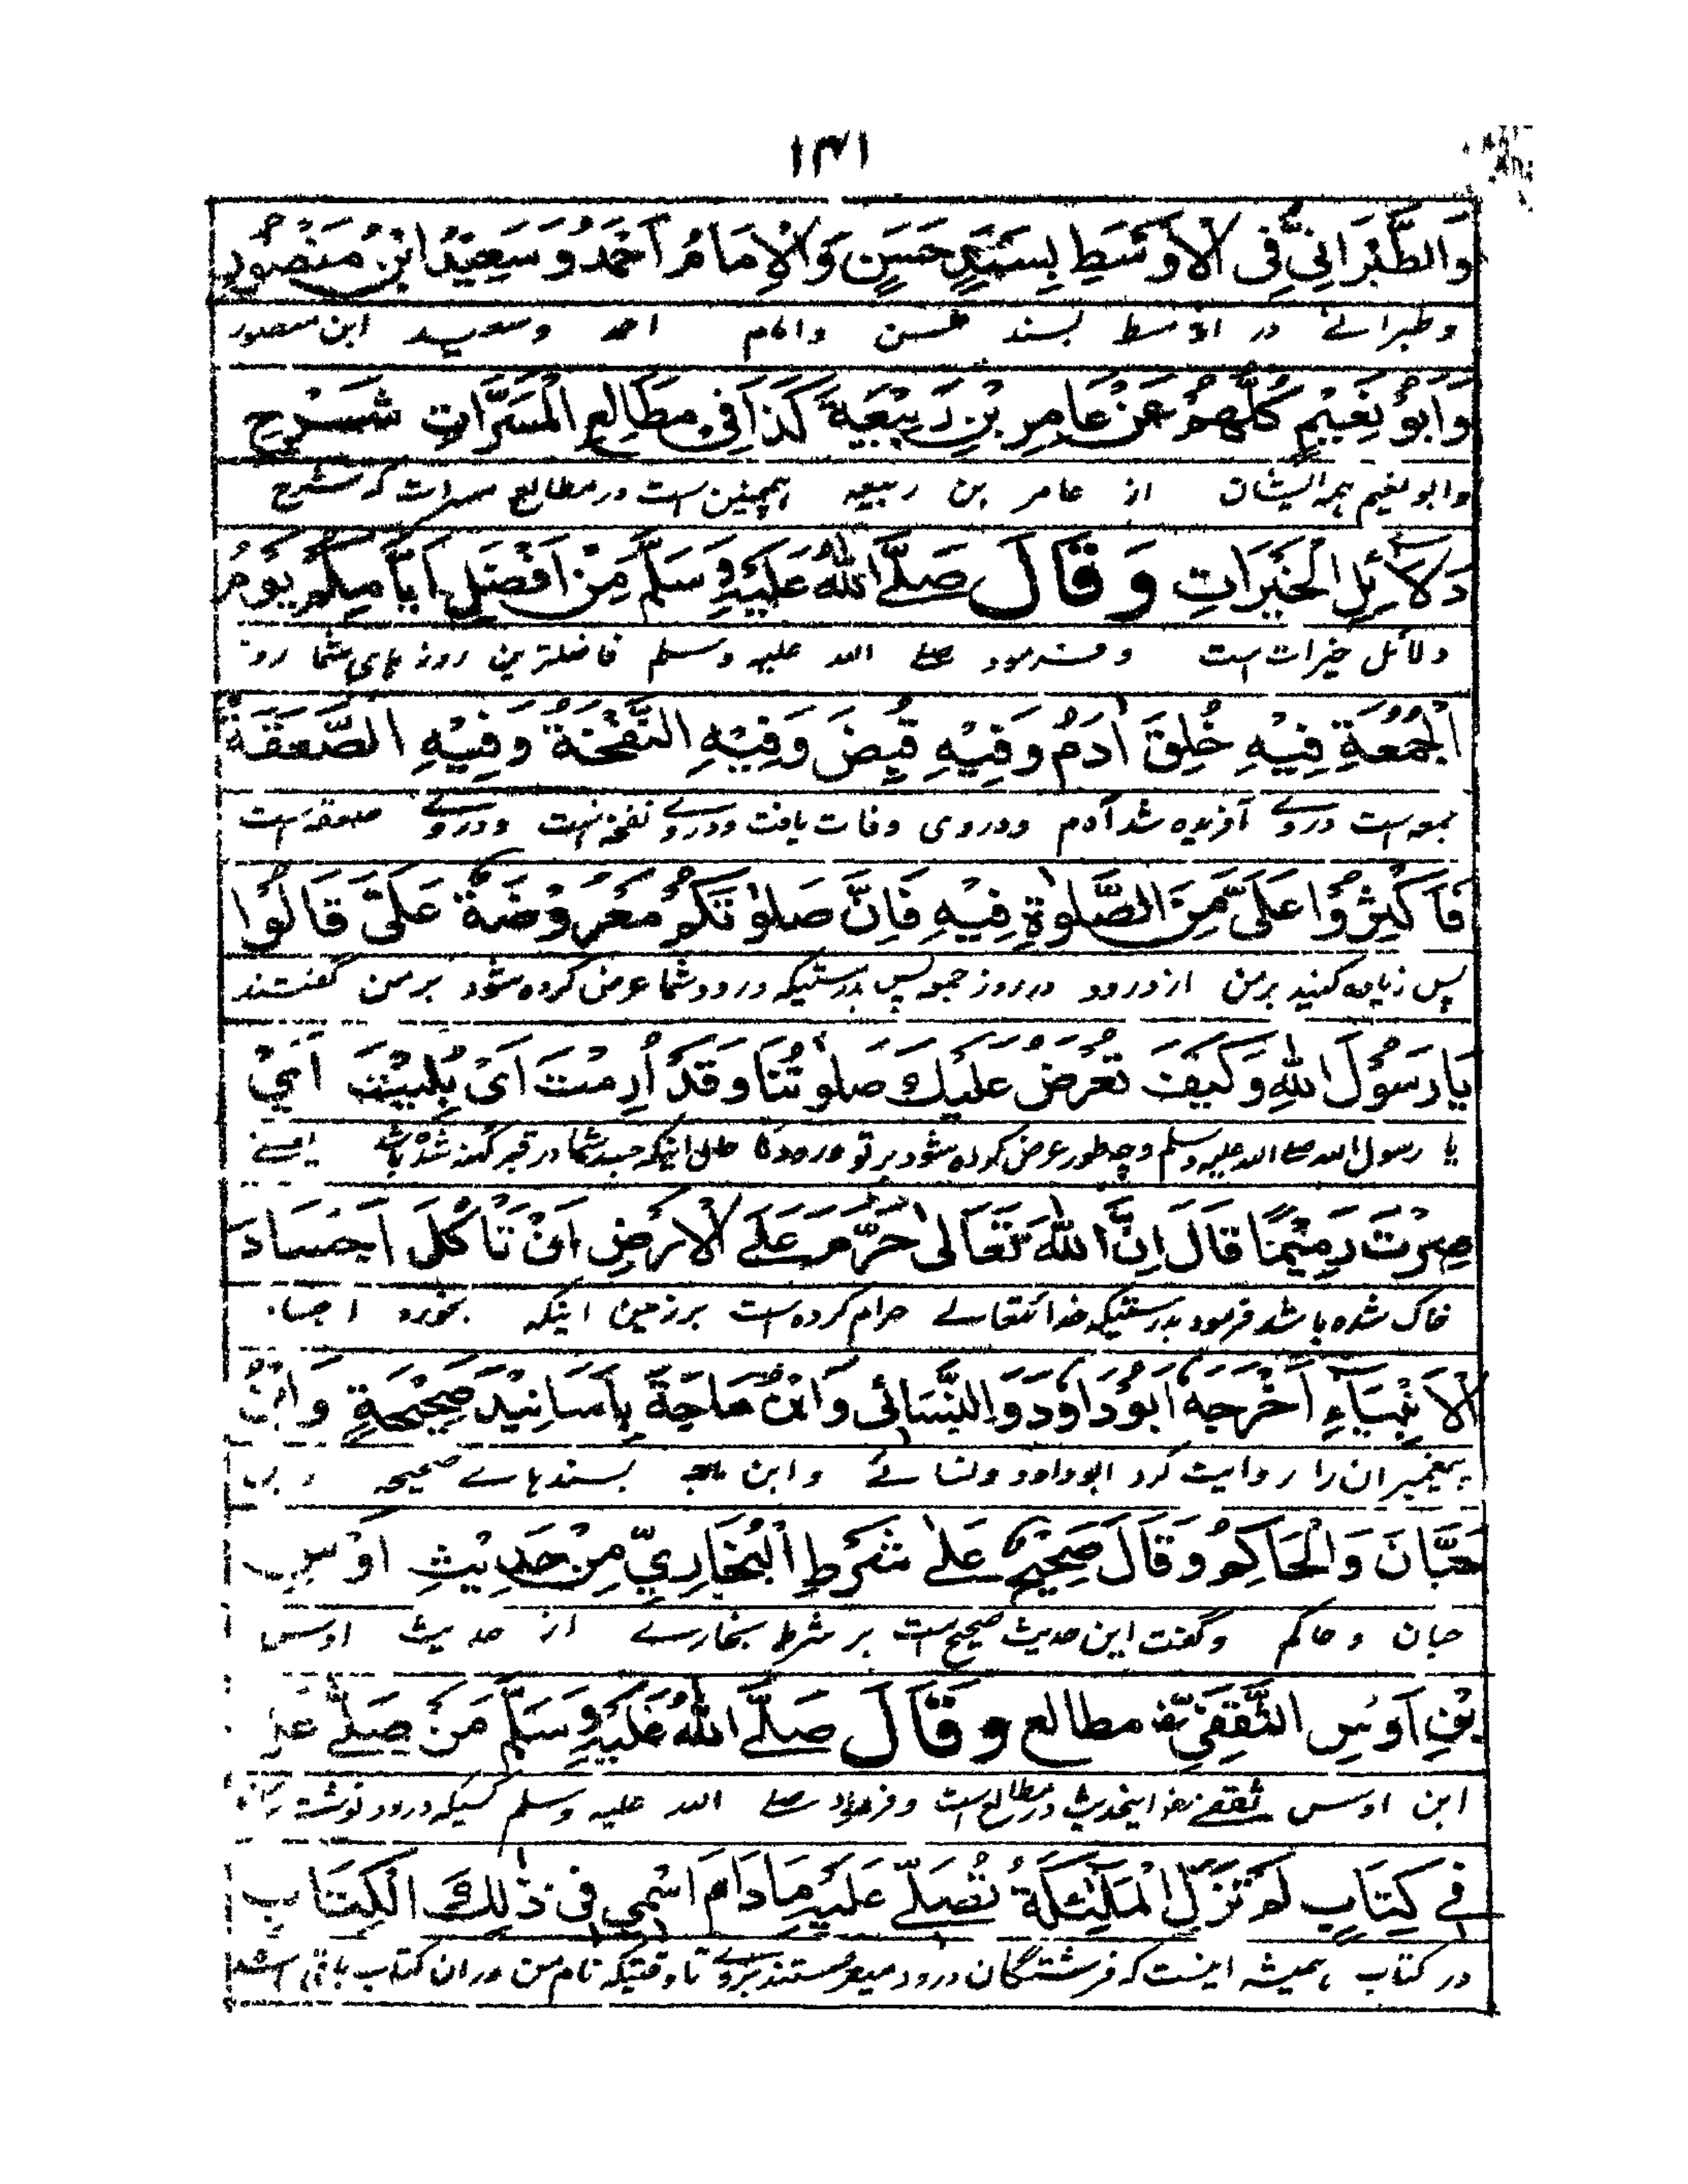 ۱۳۱
وَالطَّبْرَانِیِّ فِی الْاَوْسَطِ بِسَنَدٍ حَسَنٍ وَالْاِمَامُ اَحْمَدُ وَسَعِیْدُ ابْنُ مَنْصُوْرٍ
وطبرانے در اوسط بسند حسن وامام احمد وسعید ابن منصور
وَاَبُوْ نَعِیْمٍ كُلُّهُمْ عَنْ عَامِرِ بْنِ رَبِیْعَةَ كَذَا فِیْ مَطَالِعِ الْمَسَرَّاتِ شَرْحِ
وابونعیم ہمہ ایشان از عامر بن ربیعہ ہمچنین است در مطالع مسرات کہ شرح
دَلَائِلِ الْخَیْرَاتِ وَقَالَ صَلَّے اللهُ عَلَیْهِ وَسَلَّمَ مِنْ اَفْضَلِ اَیَّامِكُمْ یَوْمُ
دلائل خیرات است وفرمود صلے اللہ علیہ وسلم فاضلترین روز ہای شما روز
الْجُمُعَةِ فِیْهِ خُلِقَ اٰدَمُ وَفِیْهِ قُبِضَ وَفِیْهِ النَّفْخَةُ وَفِیْهِ الصَّعَقَةُ
جمعہ است دروے آفریدہ شد آدم ودروی وفات یافت ودروے نفخہ است ودروے صعقہ است
فَاَكْثِرُوْا عَلَیَّ مِنَ الصَّلٰوةِ فِیْهِ فَاِنَّ صَلٰوتَكُمْ مَعْرُوْضَةٌ عَلَیَّ قَالُوْا
پس زیادہ کنید برمن از درود در روز جمعہ پس بدرستیکہ درود شما عرض کردہ میشود برمن گفتند
یَا رَسُوْلَ اللهِ وَكَیْفَ تُعْرَضُ عَلَیْكَ صَلٰوتُنَا وَقَدْ اُرِمْتَ اَیْ بُلِیْتَ اَیْ
یا رسول اللہ صلے اللہ علیہ وسلم وچطور عرض کردہ میشود برتو درود ما حالی اینکہ جسد شما در قبر کہنہ شدہ باشد یعنے
صِرْتَ رَمِیْمًا قَالَ اِنَّ اللهَ تَعَالٰی حَرَّمَ عَلَے الْاَرْضِ اَنْ تَاْكُلَ اَجْسَادَ
خاک شدہ باشد فرمود بدرستیکہ خدائتعالے حرام کردہ است برزمین اینکہ بخورد اجساد
الْاَنْبِیَآءِ اَخْرَجَهٗ اَبُوْ دَاوٗدَ وَالنَّسَائِی وَابْنُ مَاجَةَ بِاَسَانِیْدَ صَحِیْحَةٍ وَابْنُ
پیغمبران را روایت کرد ابوداود ونسائے وابن ماجہ بسندہاے صحیحہ وابن
حَبَّانَ وَالْحَاكِمُ وَقَالَ صَحِیْحٌ عَلٰے شَرْطِ الْبُخَارِیِّ مِنْ حَدِیْثِ اَوْسِ
حبان وحاکم وگفت این حدیث صحیح است بر شرط بخارے از حدیث اوس
بْنِ اَوْسِ الثَّقَفِیِّ رضہ مطالع وَقَالَ صَلَّے اللهُ عَلَیْهِ وَسَلَّمَ مَنْ صَلّٰے عَلَیَّ
ابن اوس ثقفے رضہ اینحدیث در مطالع است وفرمود صلے اللہ علیہ وسلم کسیکہ درود نوشت
فِے كِتَابٍ لَمْ تَزَلِ الْمَلٰٓئِكَةُ تُصَلِّے عَلَیْهِ مَا دَامَ اسْمِی فِیْ ذٰلِكَ الْكِتَابِ
در کتاب ہمیشہ اینست کہ فرشتگان درود میفرستند بروے تا وقتیکہ نام من دران کتاب باقی است